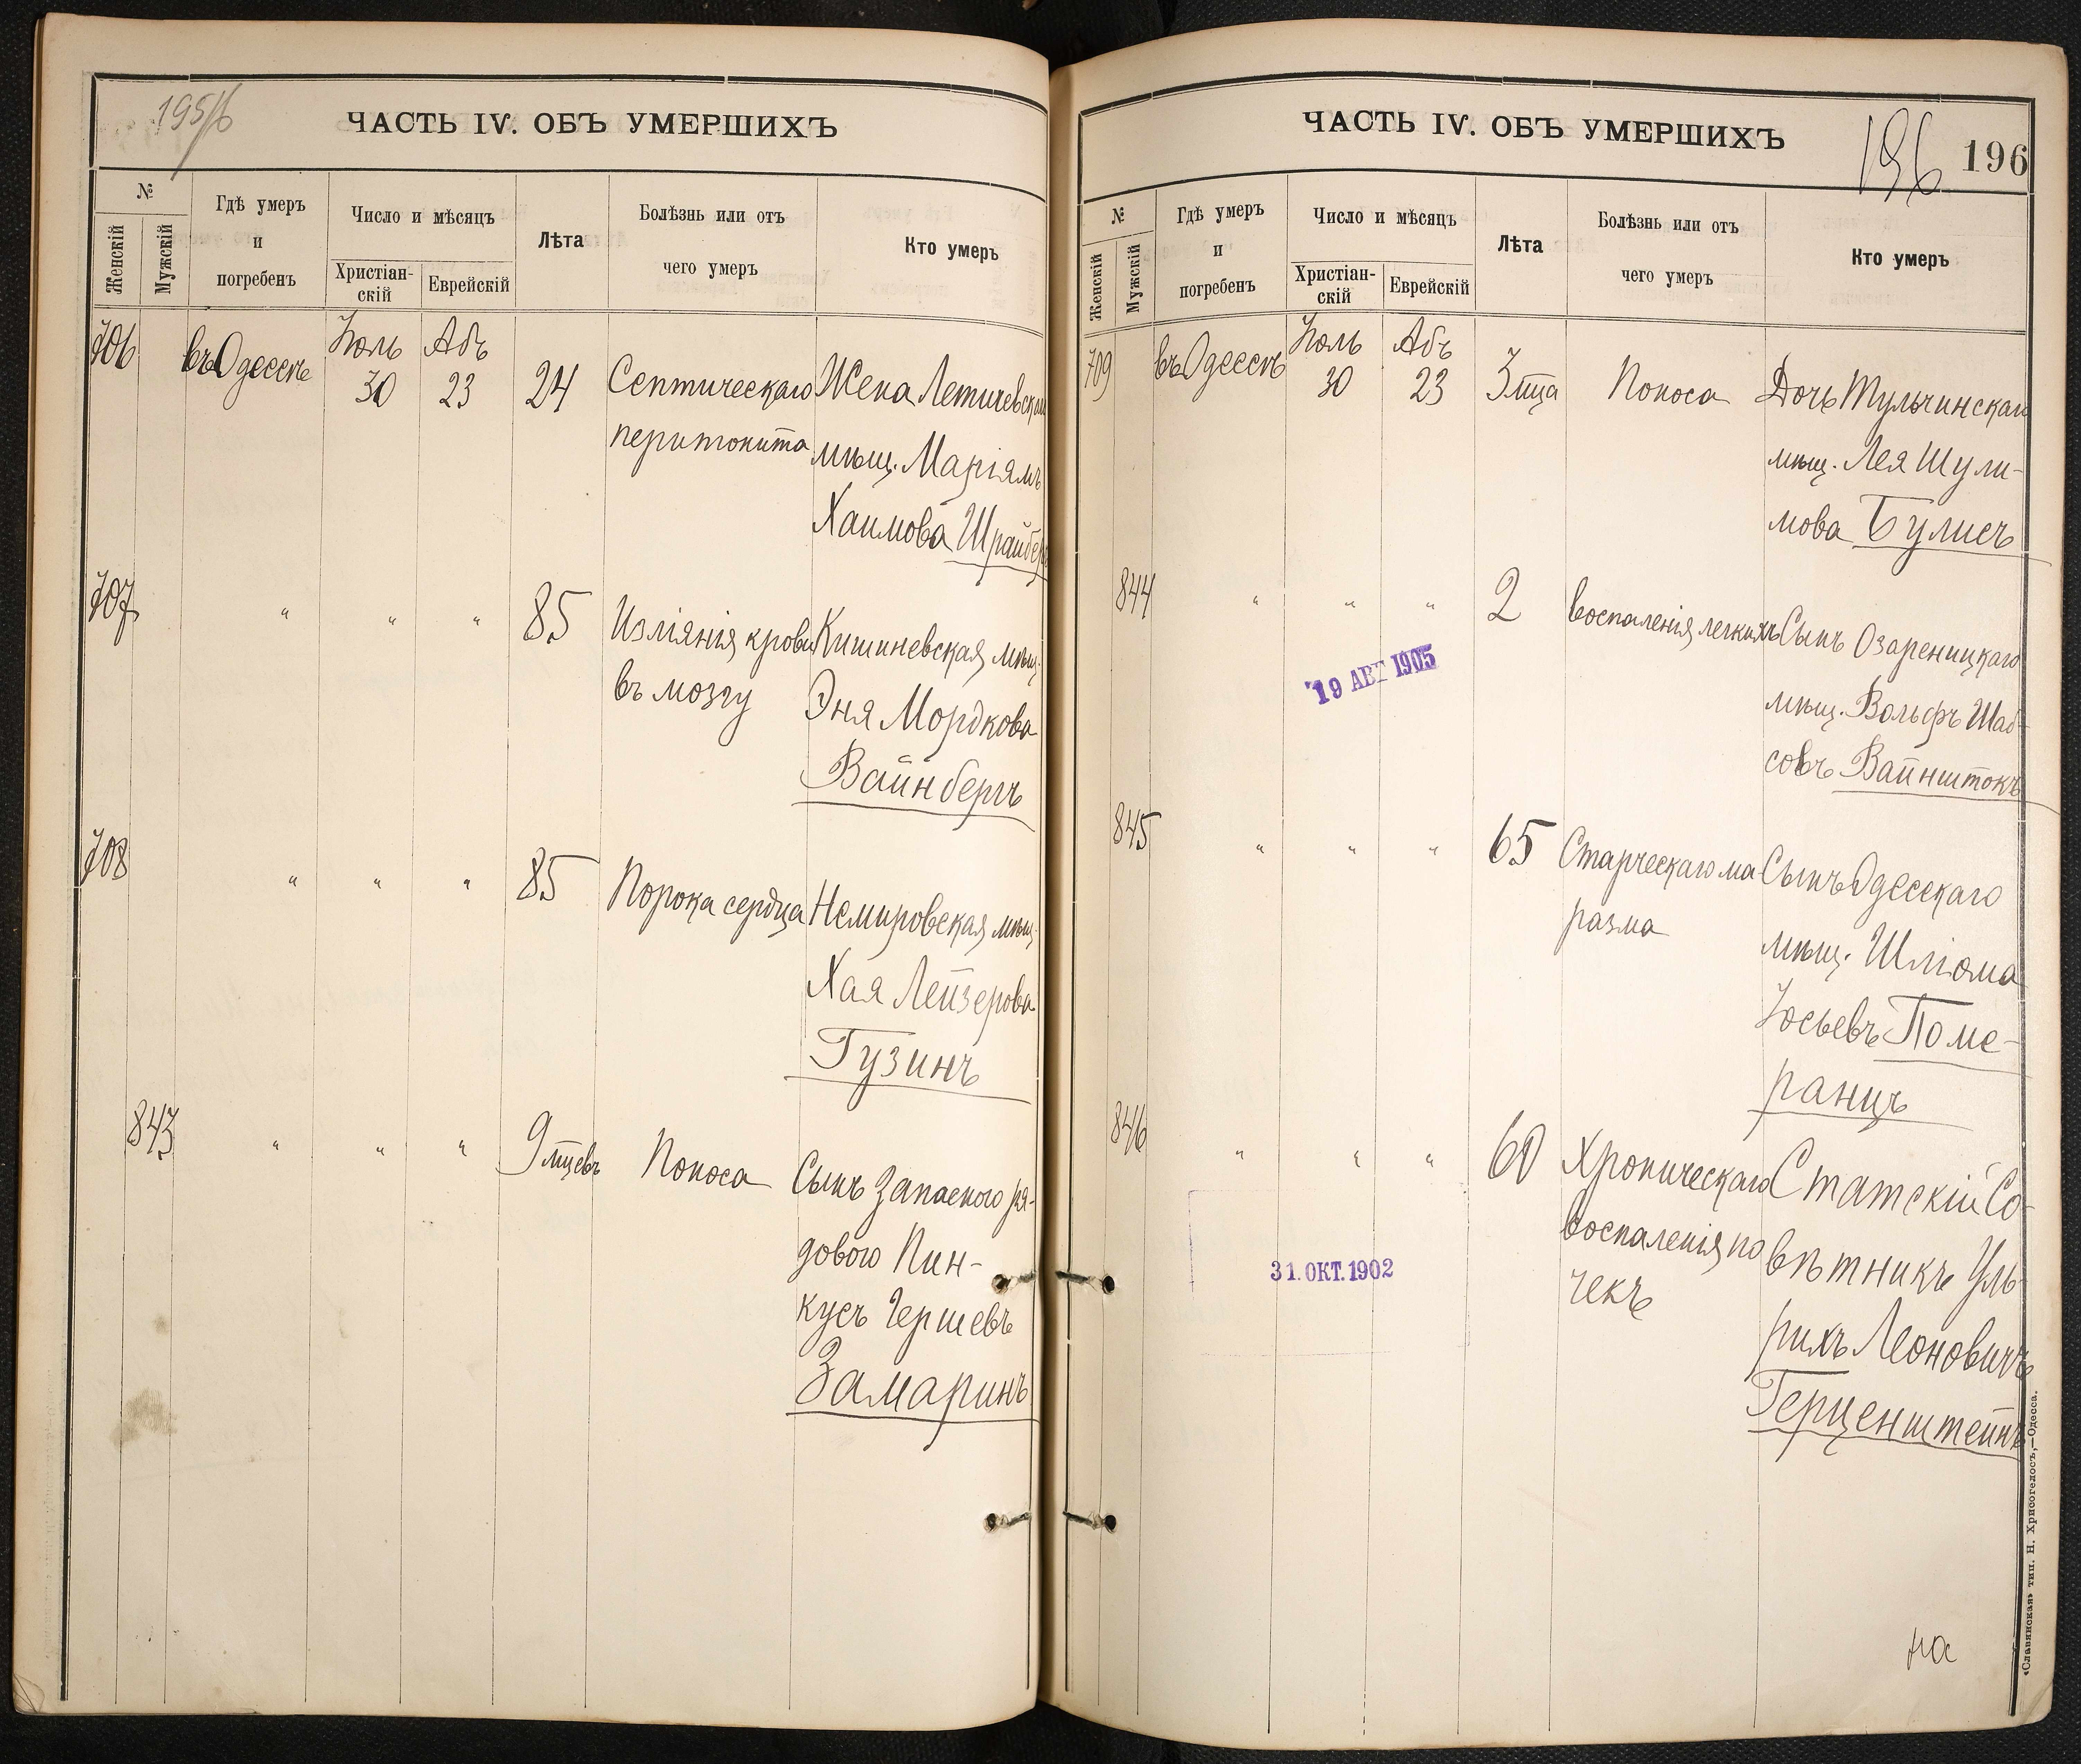 195/6
ЧАСТЬ IV. ОБЪ УМЕРШИХЪ
№
Женскій
Мужскій
Гдѣ умеръ
и
погребенъ
Число и мѣсяцъ
Христіан-
скій
Еврейскій
Лѣта
Болѣзнь или отъ
чего умеръ
Кто умеръ
706 въ Одессѣ Іюль Абъ
30 23 24 Септическаго Жена Летичевскаго
перитонита мѣщ. Маріямъ
Хаимова Шрайберъ
707 " " " 85 Изліянія крови Кишиневская мѣщ.
въ мозгу Эня Мордкова
Вайнбергъ
708 " " " 85 Порока сердца Немировская мѣщ.
Хая Лейзерова
Гузинъ
843 " " " 9 мцевъ Поноса Сынъ запасного ря-
дового Пин-
кусъ Гершевъ
Замаринъ
ЧАСТЬ IV. ОБЪ УМЕРШИХЪ
196
196
№
Женскій
Мужскій
Гдѣ умеръ
и
погребенъ
Число и мѣсяцъ
Христіан-
скій
Еврейскій
Лѣта
Болѣзнь или отъ
чего умеръ
Кто умеръ
709 въ Одессѣ Іюль Абъ
30 23 3 мца Поноса Дочь Тульчинскаго
мѣщ. Лея Шули-
мова Булисъ
844 " " " 2 воспаленія легкихъ Сынъ Озареницкаго
19 АВГ 1905
мѣщ. Вольфъ Шаб-
совъ Вайнштокъ
845 " " " 65 Старческаго ма Сынъ Одесскаго
разма мѣщ. Шліома
Іосьевъ Поме-
ранцъ
846 " " " 60 Хроническаго Статскій Со-
воспаленія по вѣтникъ Уль
чекъ рихъ Леоновичъ
31.ОКТ.1902
Герценштейнъ
на
«Славянская» тип. Н. Хрисогелосъ,—Одесса.